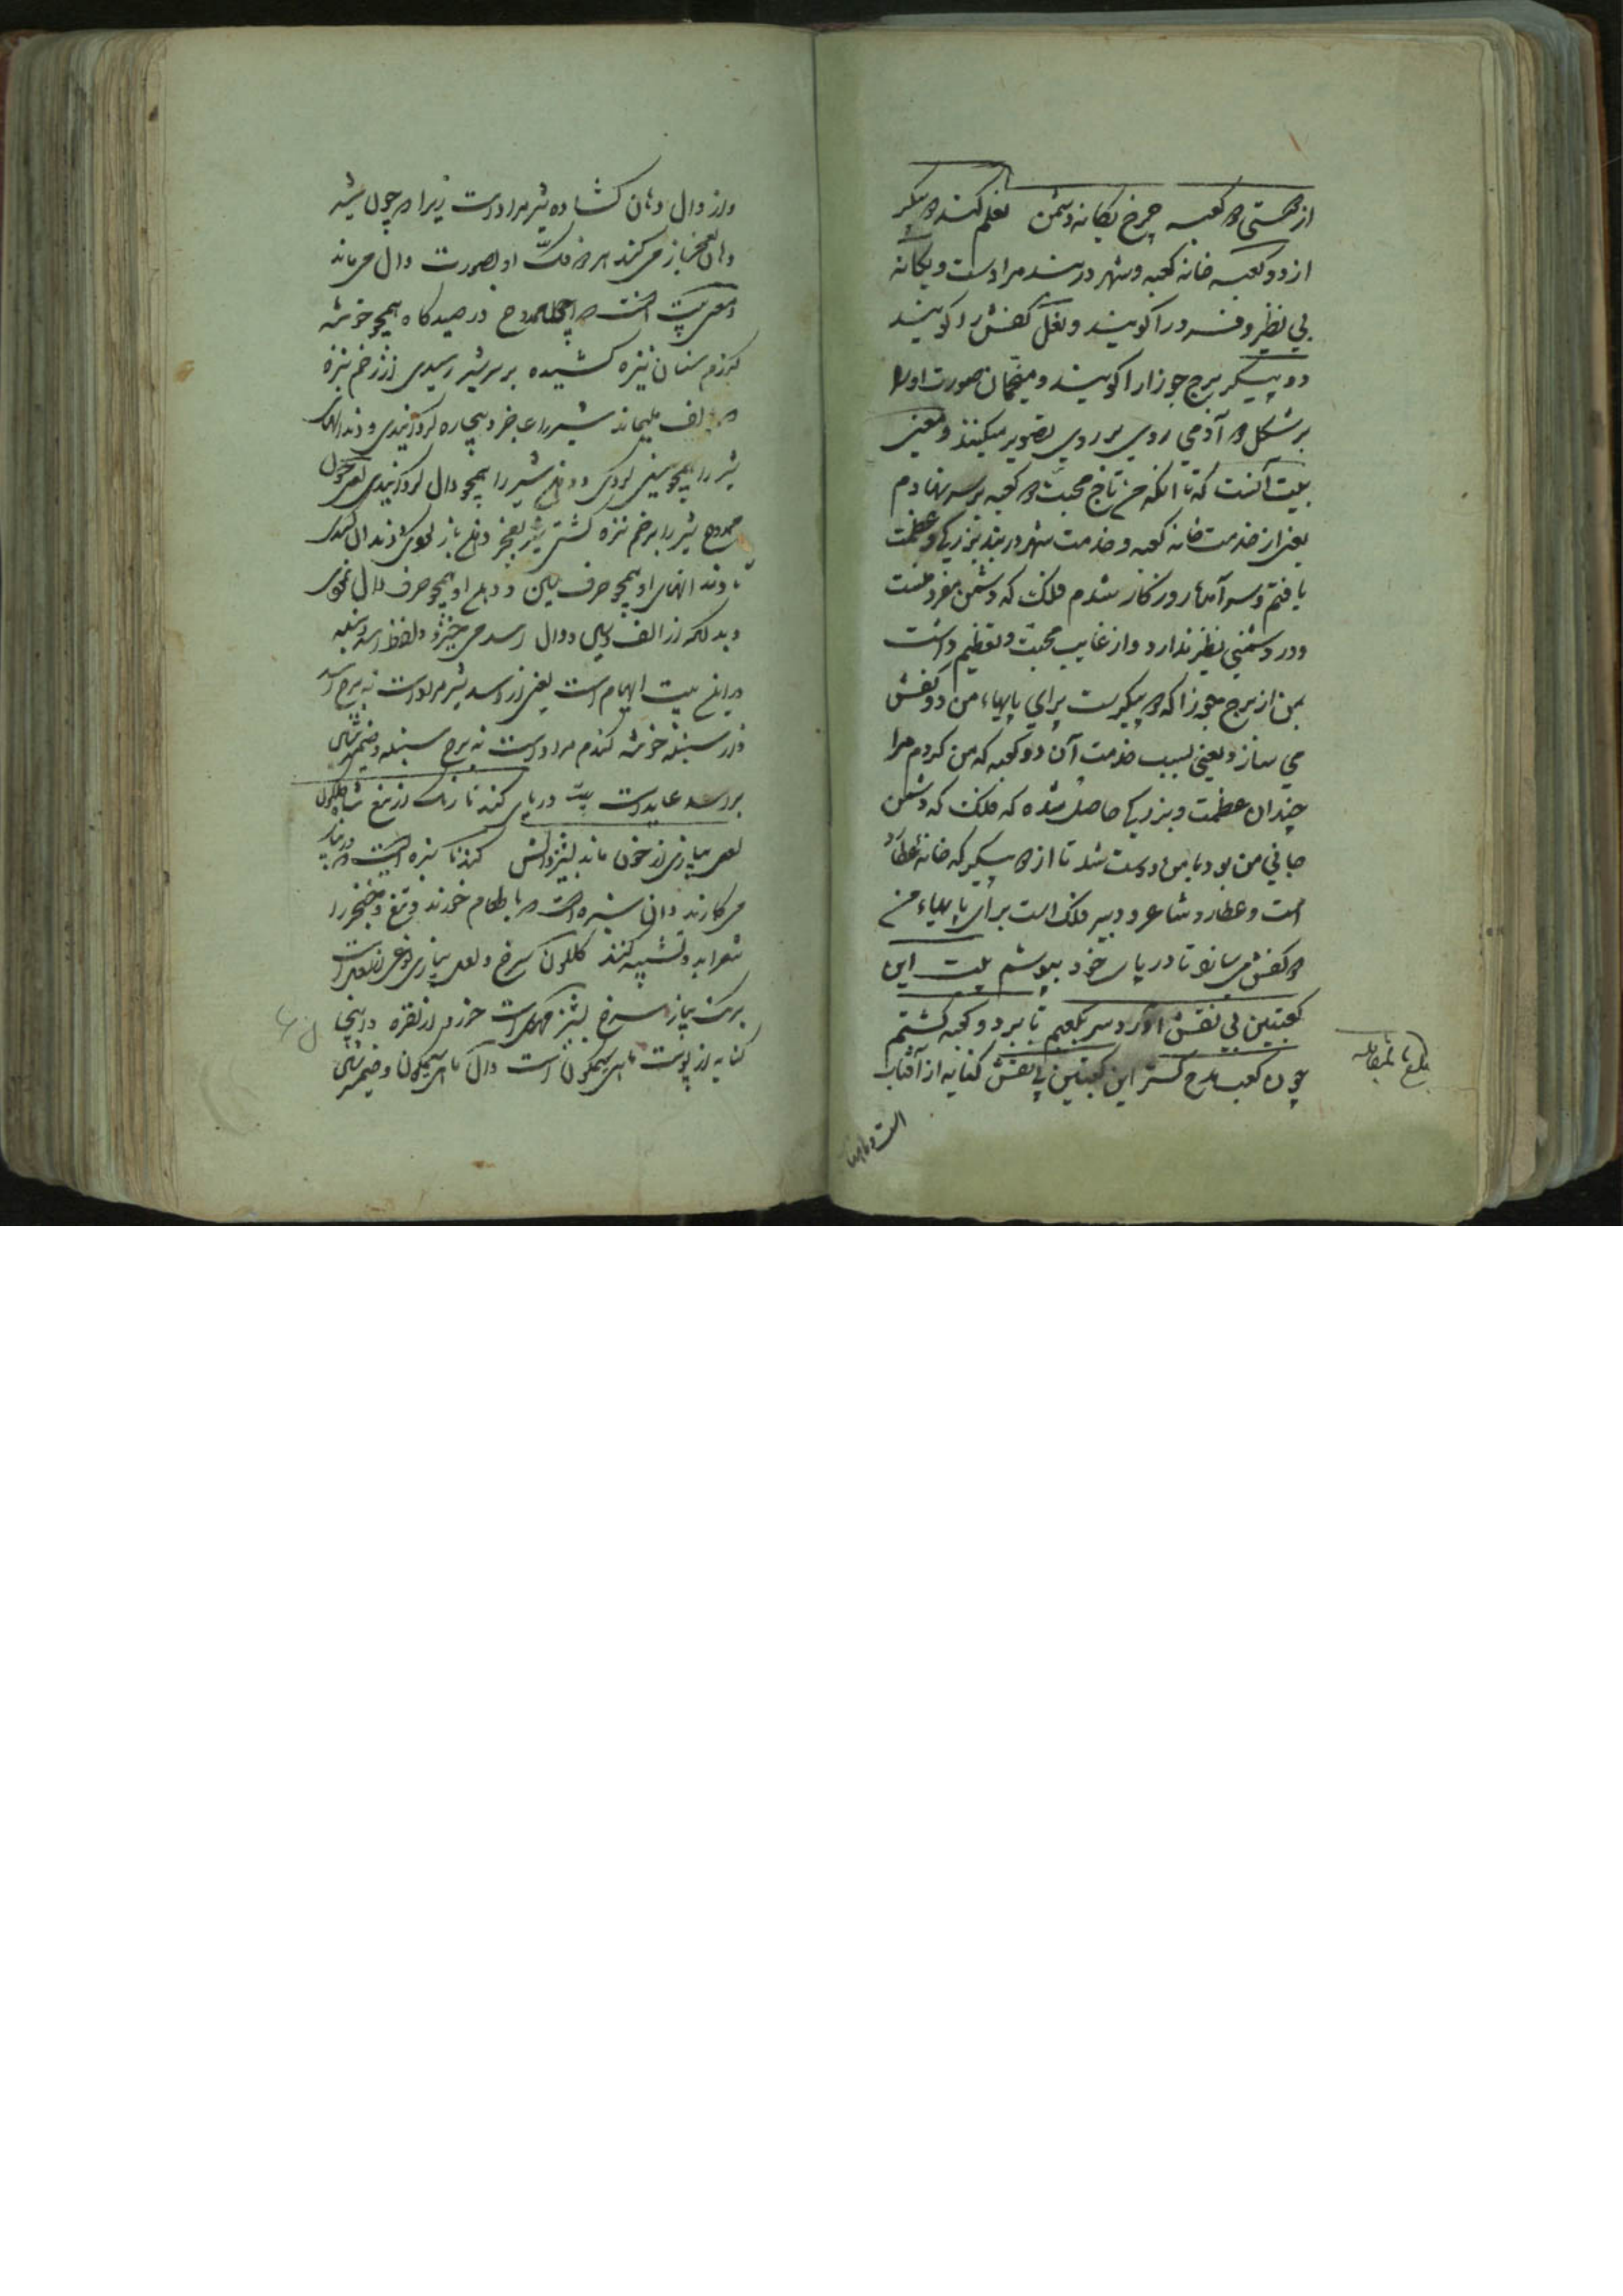 از هستی دو کعبه چرخ یگانه دشمن نعلم کند دو پیکر
از دو کعبه خانه کعبه و شهر دربند مراد است و یگانه
بی نظیر و فرد را گویند و نعل کفش را گویند
دو پیکر برج جوزا را گویند و منجمان صورت او را
بر شکل دو آدمی روی بر روی تصویر میکنند و معنی
بیت آنست که تا انکه من تاج محبت دو کعبه بر سر نهادم
یعنی از خدمت خانه کعبه و خدمت شهر دربند بزرگی و عظمت
یافتم و سر آمد روزگار شدم فلک که دشمن مفرد منست
و در دشمنی نظیر ندارد و از غایت محبت و تعظیم داشت
بمن از برج جوزا که دو پیکرست برای پایهاء من دو کفش
می سازد یعنی بسبب خدمت آن دو کعبه که من کردم مرا
چندان عظمت و بزرگی حاصل شده که فلک که دشمن
جانی من بود با من دوست شد تا از دو پیکر که خانه عطارد
است و عطارد شاعر و دبیر فلک است برای پایهاء من
دو کفش می سازد تا در پای خود بپوشم بیت این
کعبتین بی نقش آورد سر بکعبم تا بر دو کعبه گشتم
چون کعب مدح گستر این کعبتین بی نقش کنایه از آفتاب
است و ماه
بلغ بالمقابله
و از دال دهان گشاده شیر مراد است زیرا که چون شیر
دهان باز می کند هر دو فک او بصورت دال می ماند
و معنی بیت آنست که ممدوح در صیدگاه همچو خوشه
گندم سنان نیزه کشیده بر سر شیر رسیدی از زخم نیزه
که بالف میماند شیر را عاجز و بیچاره گردانیدی و دندانهای
شیر را همچو سین کردی و دهن شیر را همچو دال گردانیدی یعنی چون
ممدوح شیر را بزخم نیزه کشتی شیر بعجز دهن باز کردی و دندان
تا دندانهای او همچو حرف سین و دهن او همچو حرف دال نمودی
و بدانکه از الف و سین و دال اسد می خیزد و لفظ اسد و سنبله
درین بیت ایهام است یعنی از اسد شیر مراد است نه برج اسد
و از سنبله خوشه گندم مراد است نه برج سنبله و ضمیر شین
بر اسد عاید است بیت در پای کند تا رنگ از تیغ شاه گلگون
لعل پیازی از خون ماند پشیز والش گندنا سبزه ایست
می کارند و آن سبزه است که با طعام خورند و تیغ و خنجر را
شعرا بدو تشبیه کنند گلگون سرخ و لعل پیازی نوعی از لعل است
برنگ پیاز سرخ پشیز مهره است خورد از نقره و اینجا
کنایه از پوست ماهی سیمگون است و ال ماهی سیمگون و ضمیر شین